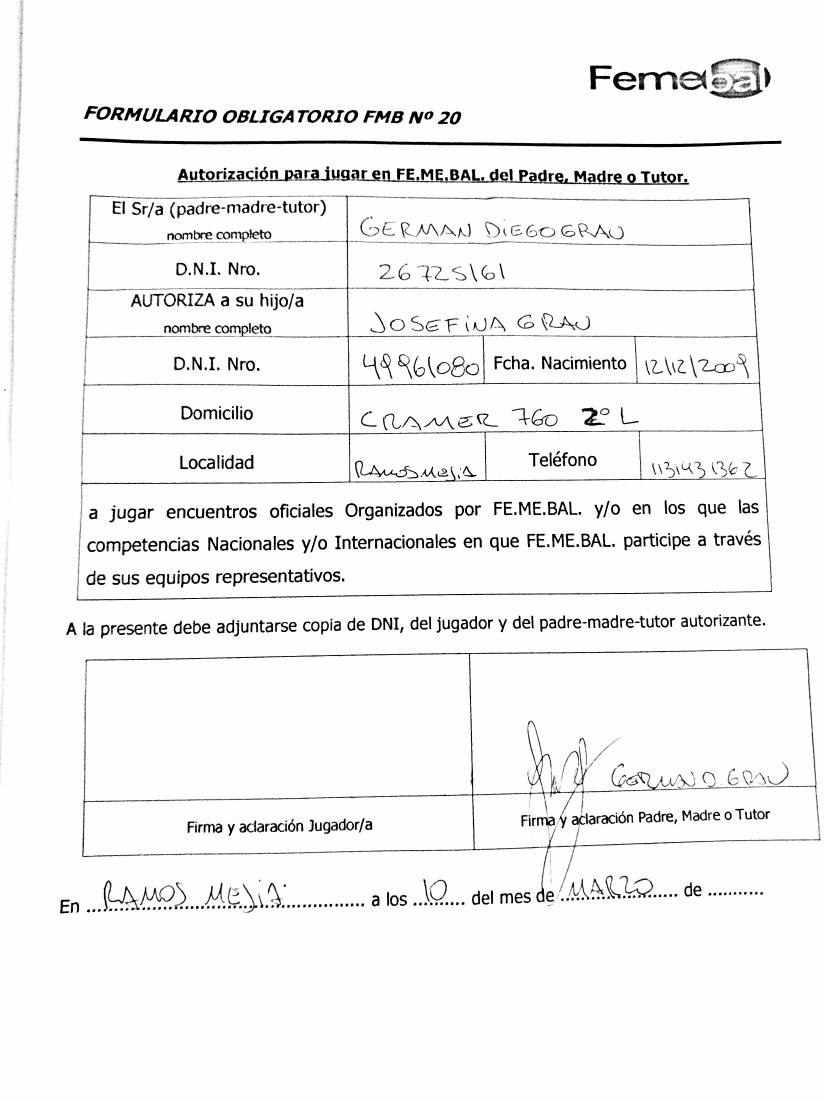 Femebal
FORMULARIO OBLIGATORIO FMB Nº 20
Autorización para jugar en FE.ME.BAL. del Padre, Madre o Tutor.
El Sr/a (padre-madre-tutor)
nombre completo
GERMAN DIEGO GRAU
D.N.I. Nro.
26725161
AUTORIZA a su hijo/a
nombre completo
JOSEFINA GRAU
D.N.I. Nro.
49961080
Fcha. Nacimiento
12/12/2009
Domicilio
CRAMER 760 2º L
Localidad
RAMOS MEJIA
Teléfono
1131431362
a jugar encuentros oficiales Organizados por FE.ME.BAL. y/o en los que las
competencias Nacionales y/o Internacionales en que FE.ME.BAL. participe a través
de sus equipos representativos.
A la presente debe adjuntarse copia de DNI, del jugador y del padre-madre-tutor autorizante.
GERMAN D. GRAU
Firma y aclaración Jugador/a
Firma y aclaración Padre, Madre o Tutor
En RAMOS MEJIA a los 10 del mes de MARZO de ...........